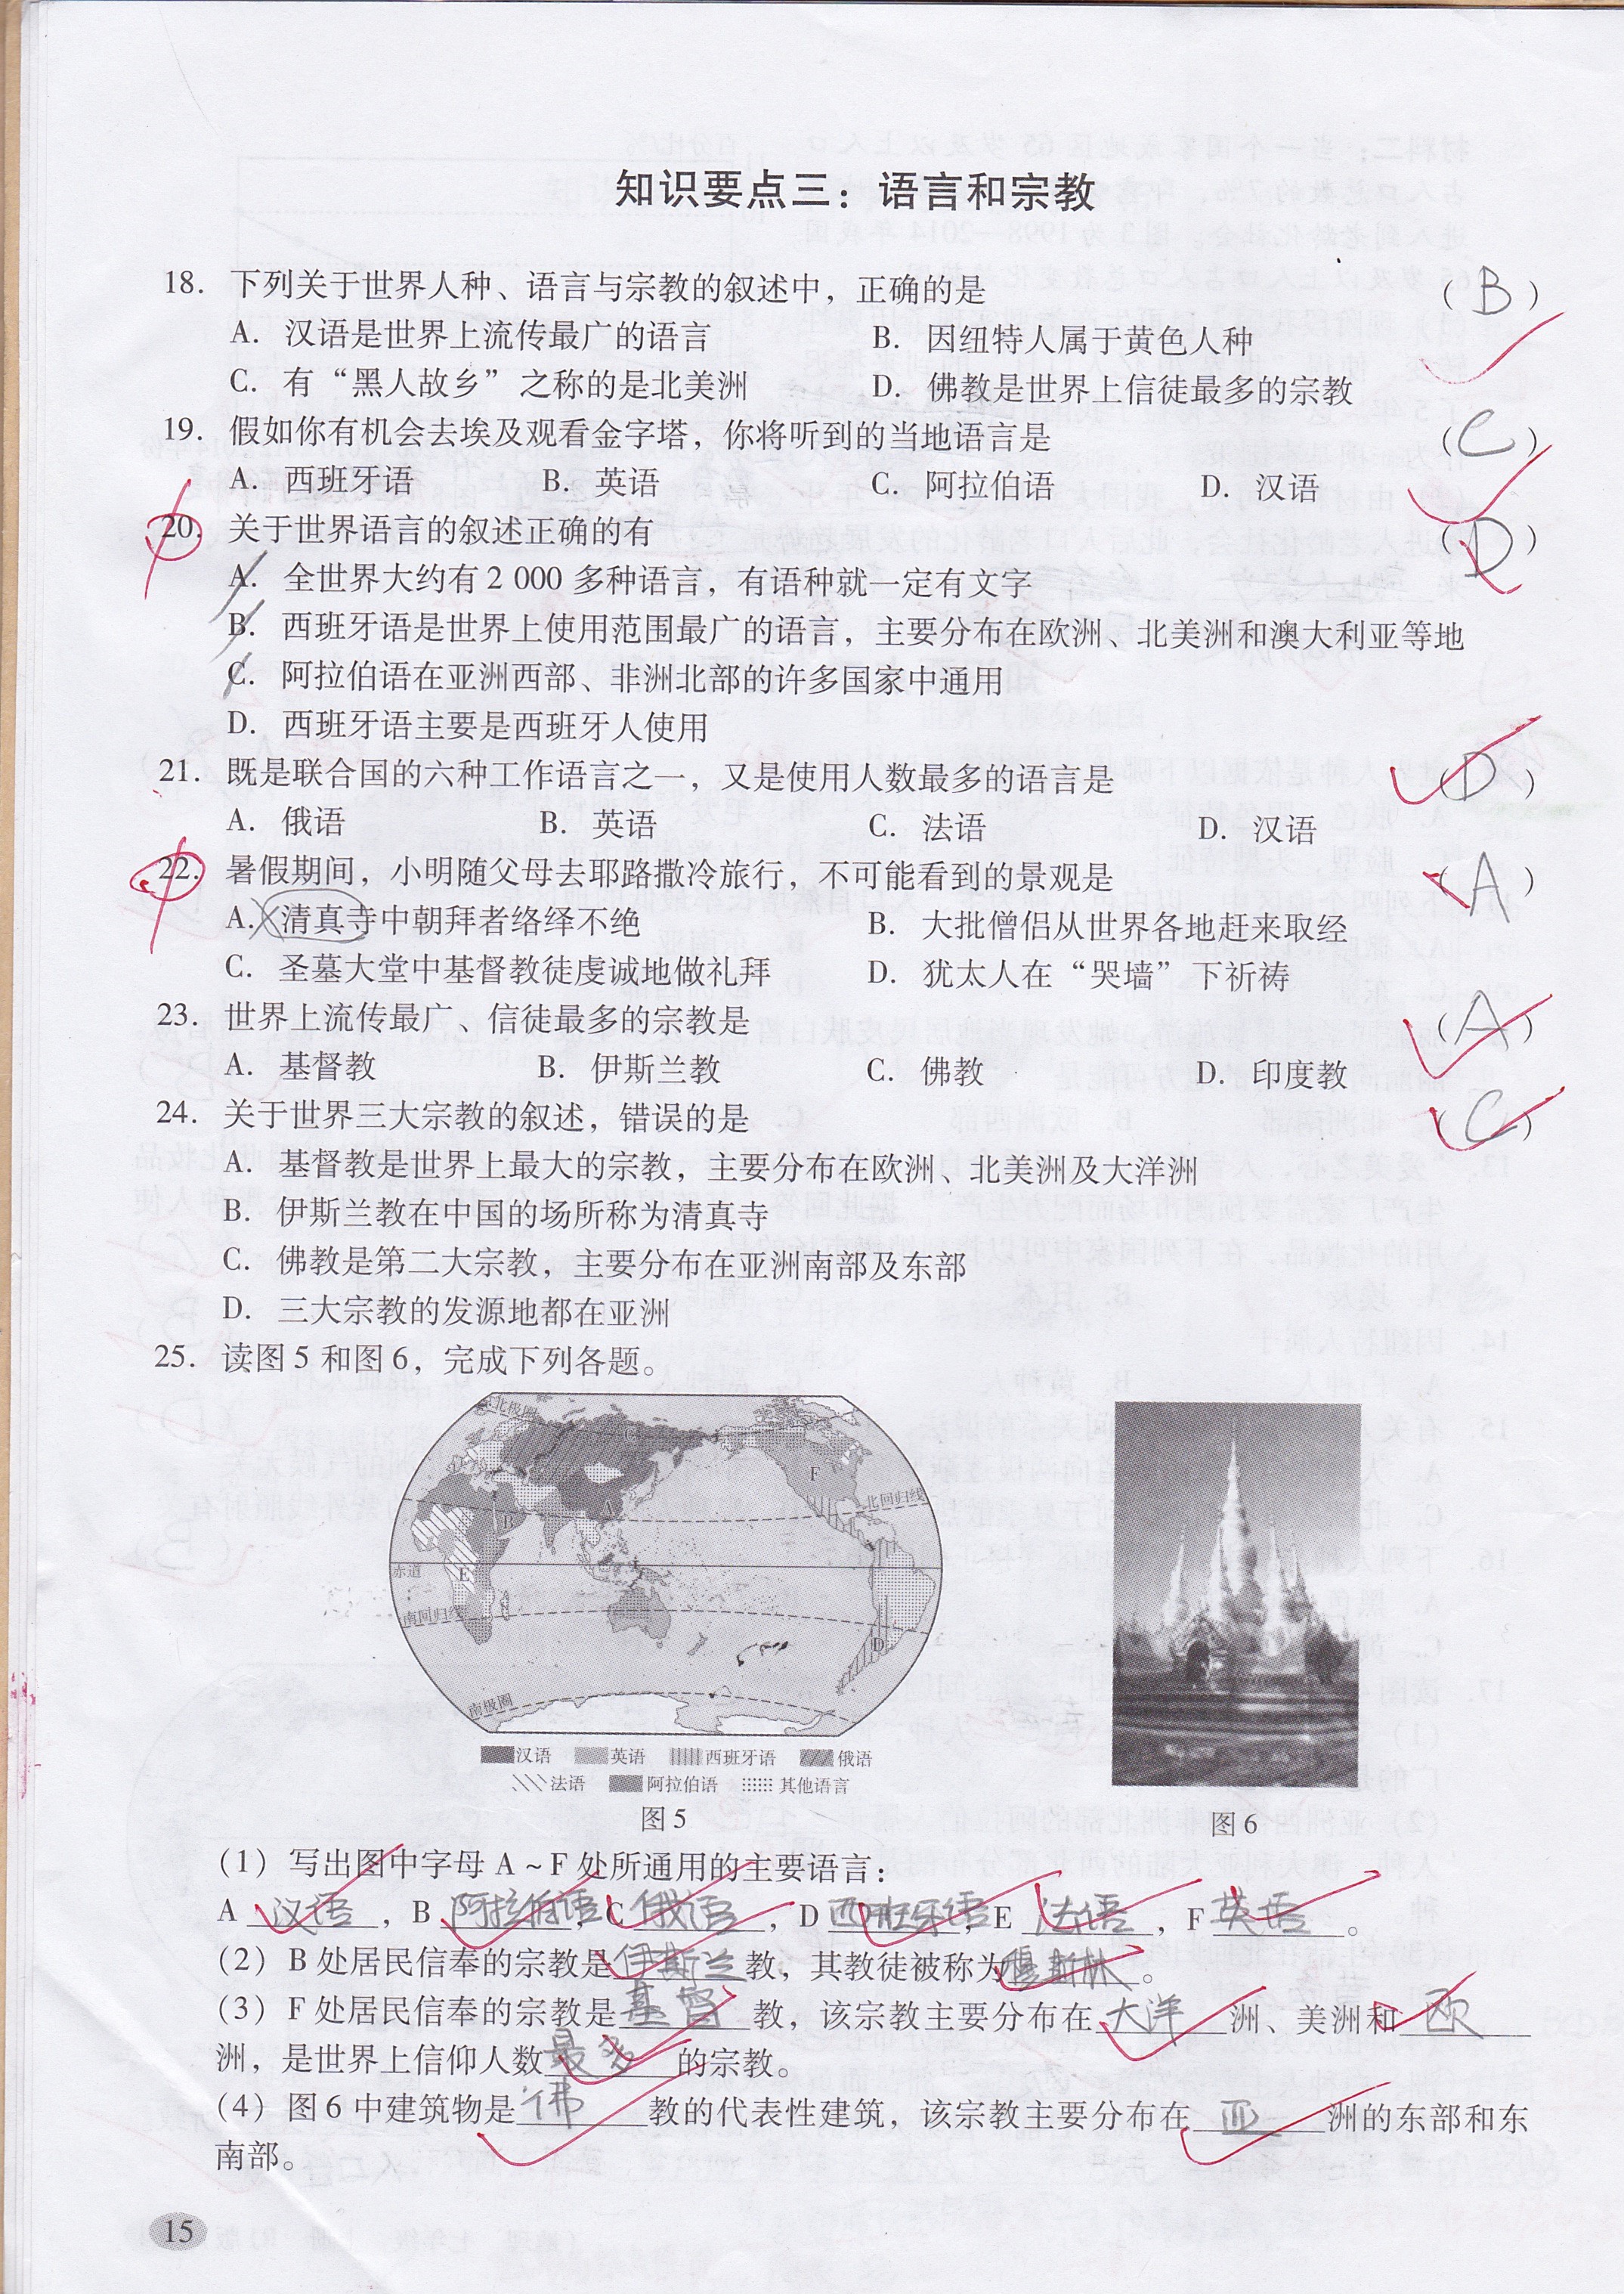 知识要点三：语言和宗教
18. 下列关于世界人种、语言与宗教的叙述中，正确的是 （B）
A. 汉语是世界上流传最广的语言 B. 因纽特人属于黄色人种
C. 有“黑人故乡”之称的是北美洲 D. 佛教是世界上信徒最多的宗教
19. 假如你有机会去埃及观看金字塔，你将听到的当地语言是 （C）
A. 西班牙语 B. 英语 C. 阿拉伯语 D. 汉语
20. 关于世界语言的叙述正确的有 （D）
A. 全世界大约有2 000多种语言，有语种就一定有文字
B. 西班牙语是世界上使用范围最广的语言，主要分布在欧洲、北美洲和澳大利亚等地
C. 阿拉伯语在亚洲西部、非洲北部的许多国家中通用
D. 西班牙语主要是西班牙人使用
21. 既是联合国的六种工作语言之一，又是使用人数最多的语言是 （D）
A. 俄语 B. 英语 C. 法语 D. 汉语
22. 暑假期间，小明随父母去耶路撒冷旅行，不可能看到的景观是 （A）
A. 清真寺中朝拜者络绎不绝 B. 大批僧侣从世界各地赶来取经
C. 圣墓大堂中基督教徒虔诚地做礼拜 D. 犹太人在“哭墙”下祈祷
23. 世界上流传最广、信徒最多的宗教是 （A）
A. 基督教 B. 伊斯兰教 C. 佛教 D. 印度教
24. 关于世界三大宗教的叙述，错误的是 （C）
A. 基督教是世界上最大的宗教，主要分布在欧洲、北美洲及大洋洲
B. 伊斯兰教在中国的场所称为清真寺
C. 佛教是第二大宗教，主要分布在亚洲南部及东部
D. 三大宗教的发源地都在亚洲
25. 读图5和图6，完成下列各题。
北极圈
C
F
北回归线
A
B
赤道
E
南回归线
D
南极圈
汉语 英语 西班牙语 俄语
法语 阿拉伯语 其他语言
图5 图6
（1）写出图中字母A～F处所通用的主要语言：
A 汉语，B 阿拉伯语，C 俄语，D 西班牙语，E 法语，F 英语。
（2）B处居民信奉的宗教是伊斯兰教，其教徒被称为穆斯林。
（3）F处居民信奉的宗教是基督教，该宗教主要分布在大洋洲、美洲和欧
洲，是世界上信仰人数最多的宗教。
（4）图6中建筑物是佛教的代表性建筑，该宗教主要分布在亚洲的东部和东
南部。
15